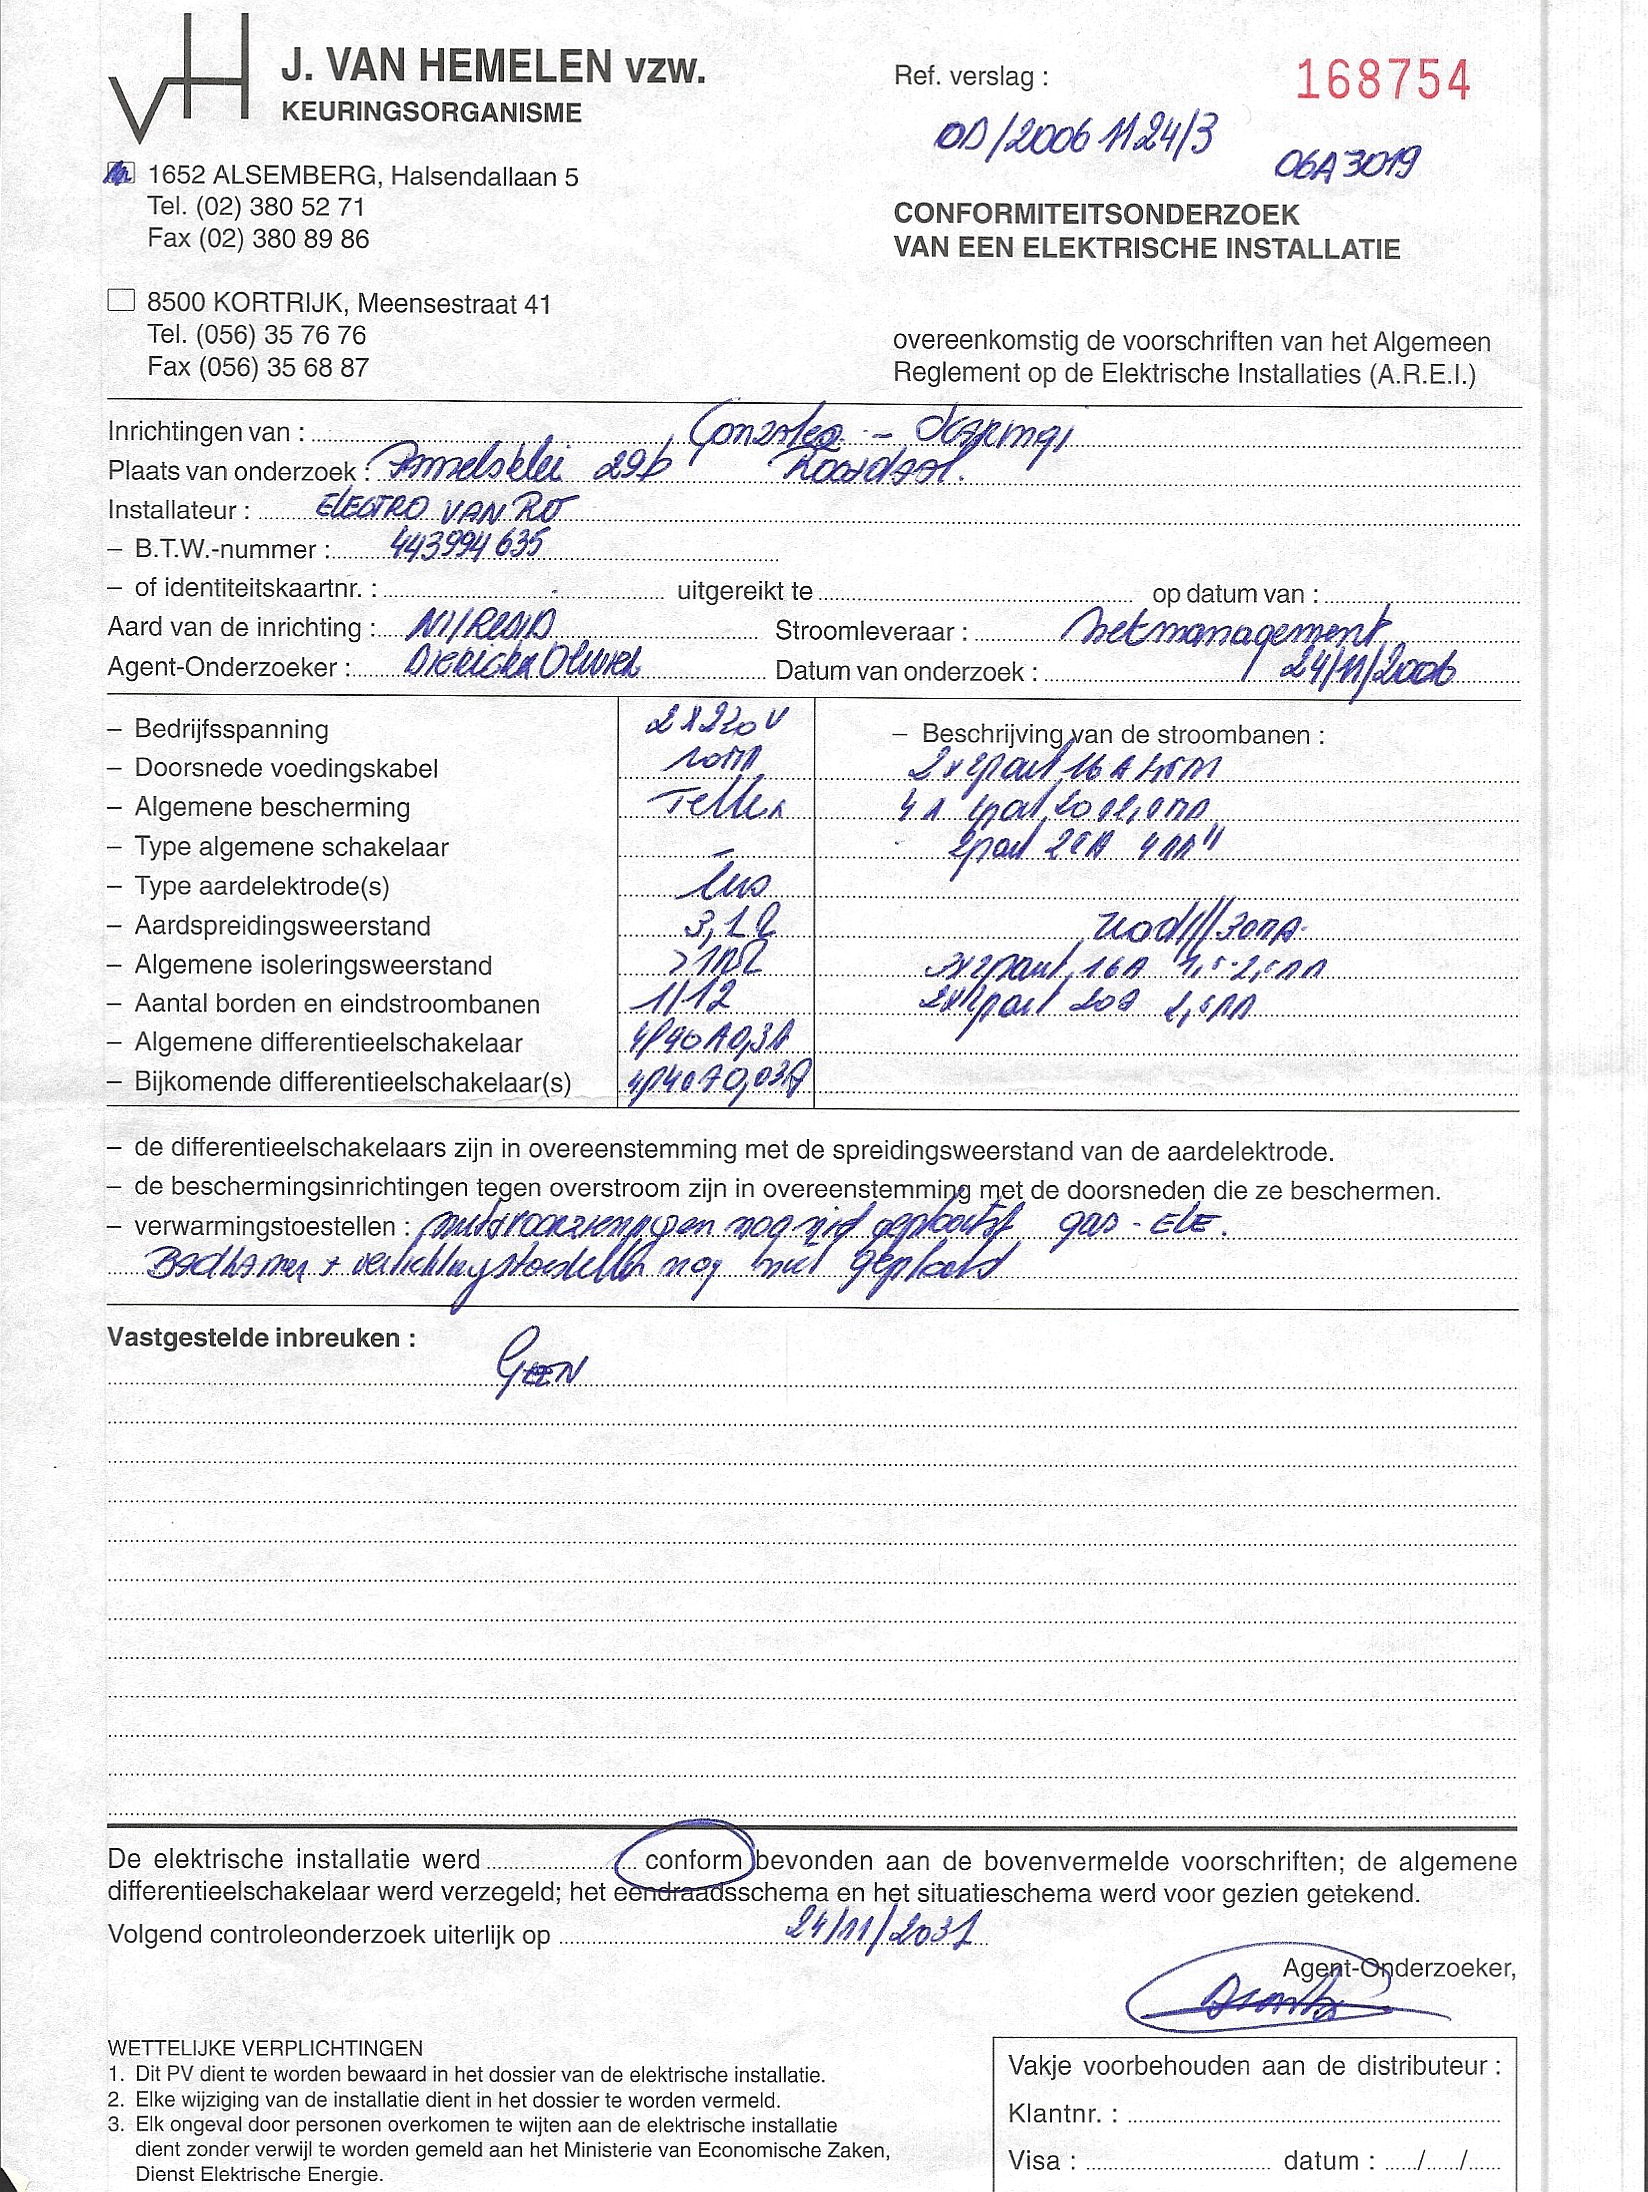 VH
J. VAN HEMELEN VZW.
KEURINGSORGANISME
1652 ALSEMBERG, Halsendallaan 5
Tel. (02) 380 52 71
Fax (02) 380 89 86
8500 KORTRIJK, Meensestraat 41
Tel. (056) 35 76 76
Fax (056) 35 68 87
Ref. verslag : 168754
OD/20061124/3
06A3019
CONFORMITEITSONDERZOEK
VAN EEN ELEKTRISCHE INSTALLATIE
overeenkomstig de voorschriften van het Algemeen
Reglement op de Elektrische Installaties (A.R.E.I.)
Inrichtingen van :
Plaats van onderzoek : 29b Roosdaal.
Installateur : ELECTRO VAN RO
– B.T.W.-nummer : 443994635
– of identiteitskaartnr. : uitgereikt te op datum van :
Aard van de inrichting : NI/RESID Stroomleveraar : Netmanagement
Agent-Onderzoeker : Dierickx Olivier Datum van onderzoek : 24/11/2006
– Bedrijfsspanning 2x220V
– Doorsnede voedingskabel
– Algemene bescherming Teller
– Type algemene schakelaar –
– Type aardelektrode(s) lus
– Aardspreidingsweerstand 3,1Ω
– Algemene isoleringsweerstand >1MΩ
– Aantal borden en eindstroombanen 1/12
– Algemene differentieelschakelaar 4P40A0,3A
– Bijkomende differentieelschakelaar(s) 4P40A0,03A
– Beschrijving van de stroombanen :
2x2polt 16A
4x 2pol 20A 2,5
2pol 25A 4
30mA.
3x2polt 16A 1,5-2,5
2x2polt 20A 2,5
– de differentieelschakelaars zijn in overeenstemming met de spreidingsweerstand van de aardelektrode.
– de beschermingsinrichtingen tegen overstroom zijn in overeenstemming met de doorsneden die ze beschermen.
– verwarmingstoestellen : nutsvoorzieningen nog niet geplaatst gas - ELE.
Badkamer + verlichtingstoestellen nog niet geplaatst
Vastgestelde inbreuken :
GEEN
De elektrische installatie werd conform bevonden aan de bovenvermelde voorschriften; de algemene
differentieelschakelaar werd verzegeld; het eendraadsschema en het situatieschema werd voor gezien getekend.
Volgend controleonderzoek uiterlijk op 24/11/2031
Agent-Onderzoeker,
WETTELIJKE VERPLICHTINGEN
1. Dit PV dient te worden bewaard in het dossier van de elektrische installatie.
2. Elke wijziging van de installatie dient in het dossier te worden vermeld.
3. Elk ongeval door personen overkomen te wijten aan de elektrische installatie
dient zonder verwijl te worden gemeld aan het Ministerie van Economische Zaken,
Dienst Elektrische Energie.
Vakje voorbehouden aan de distributeur :
Klantnr. :
Visa : datum : ..../..../....